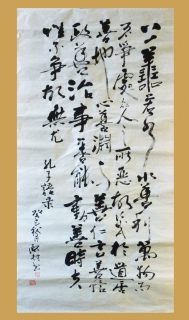 上善若水水善利萬物而
不爭處衆人之所惡故幾於道居
善地心善淵與善仁言善信
政善治事善能動善時夫
唯不爭故無尤 老子語录
癸巳秋月